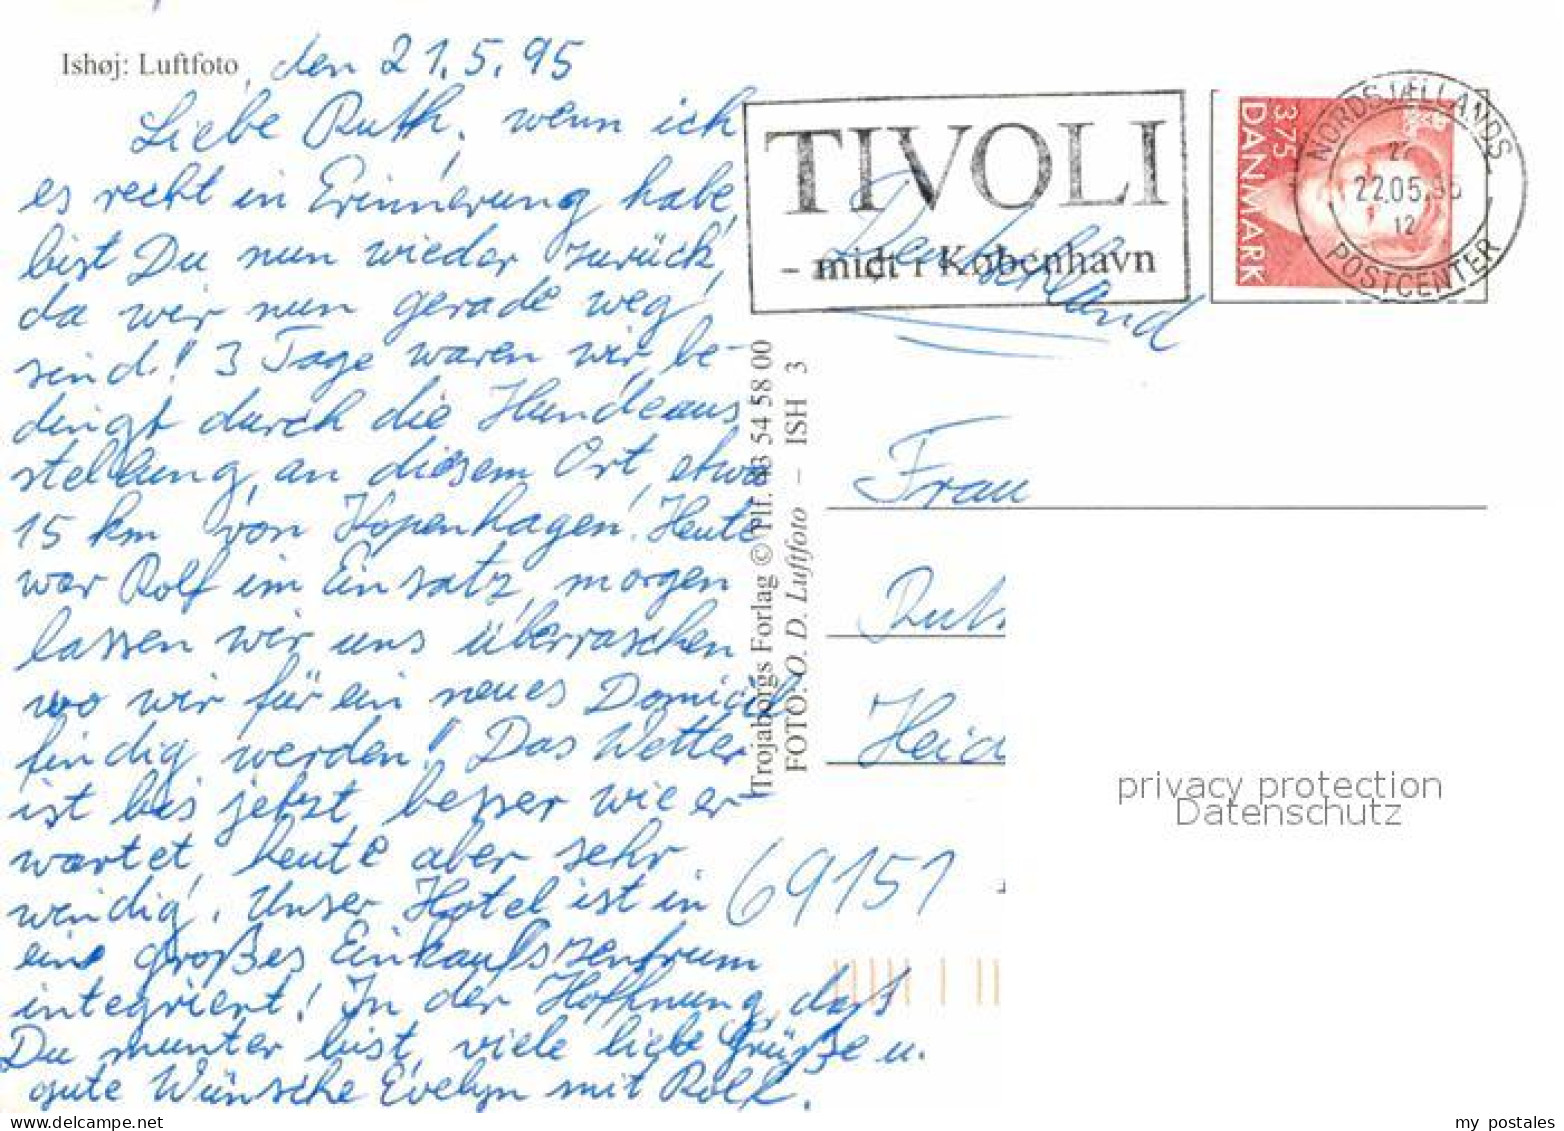 Ishøj: Luftfoto, den 21.5.95
Liebe Ruth, wenn ich
es recht in Erinnerung habe,
bist Du nun wieder zurück,
da wir nun gerade weg
sind! 3 Tage waren wir, be-
dingt durch die Hundeaus
stellung, an diesem Ort, etwa
15 km von Kopenhagen! Heute
war Rolf im Einsatz, morgen
lassen wir uns überraschen
wo wir für ein neues Domicil
findig werden! Das Wetter
ist bis jetzt besser wie er-
wartet, heute aber sehr
windig. Unser Hotel ist in
ein großes Einkaufszentrum
integriert! In der Hoffnung, daß
Du munter bist, viele liebe Grüße u.
gute Wünsche Evelyn mit Rolf.
TIVOLI
- midt i København
DANMARK
3.75
NORDSJÆLLANDS
22.05.95
12
POSTCENTER
Deutschland
Trojaborgs Forlag © Tlf. 43 54 58 00
FOTO: O. D. Luftfoto - ISH 3
Frau
Ruth
Heid
69151
privacy protection
Datenschutz
my postales